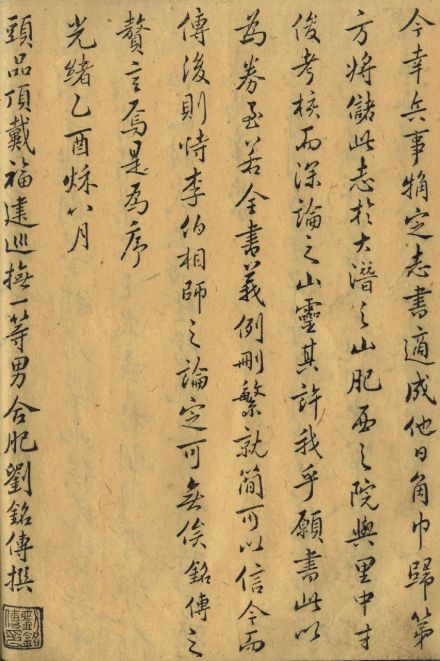 今幸兵事犕定志書適成他日角巾歸第
方將儲此志於大潛之山肥西之院與里中才
俊考核而深論之山靈其許我乎願書此以
為券至若全書義例刪繁就簡可以信今而
傳後則恃李伯相師之論定可無俟銘傳之
贅言焉是為序
光緒乙酉秌八月
頭品頂戴福建巡撫一等男合肥劉銘傳撰